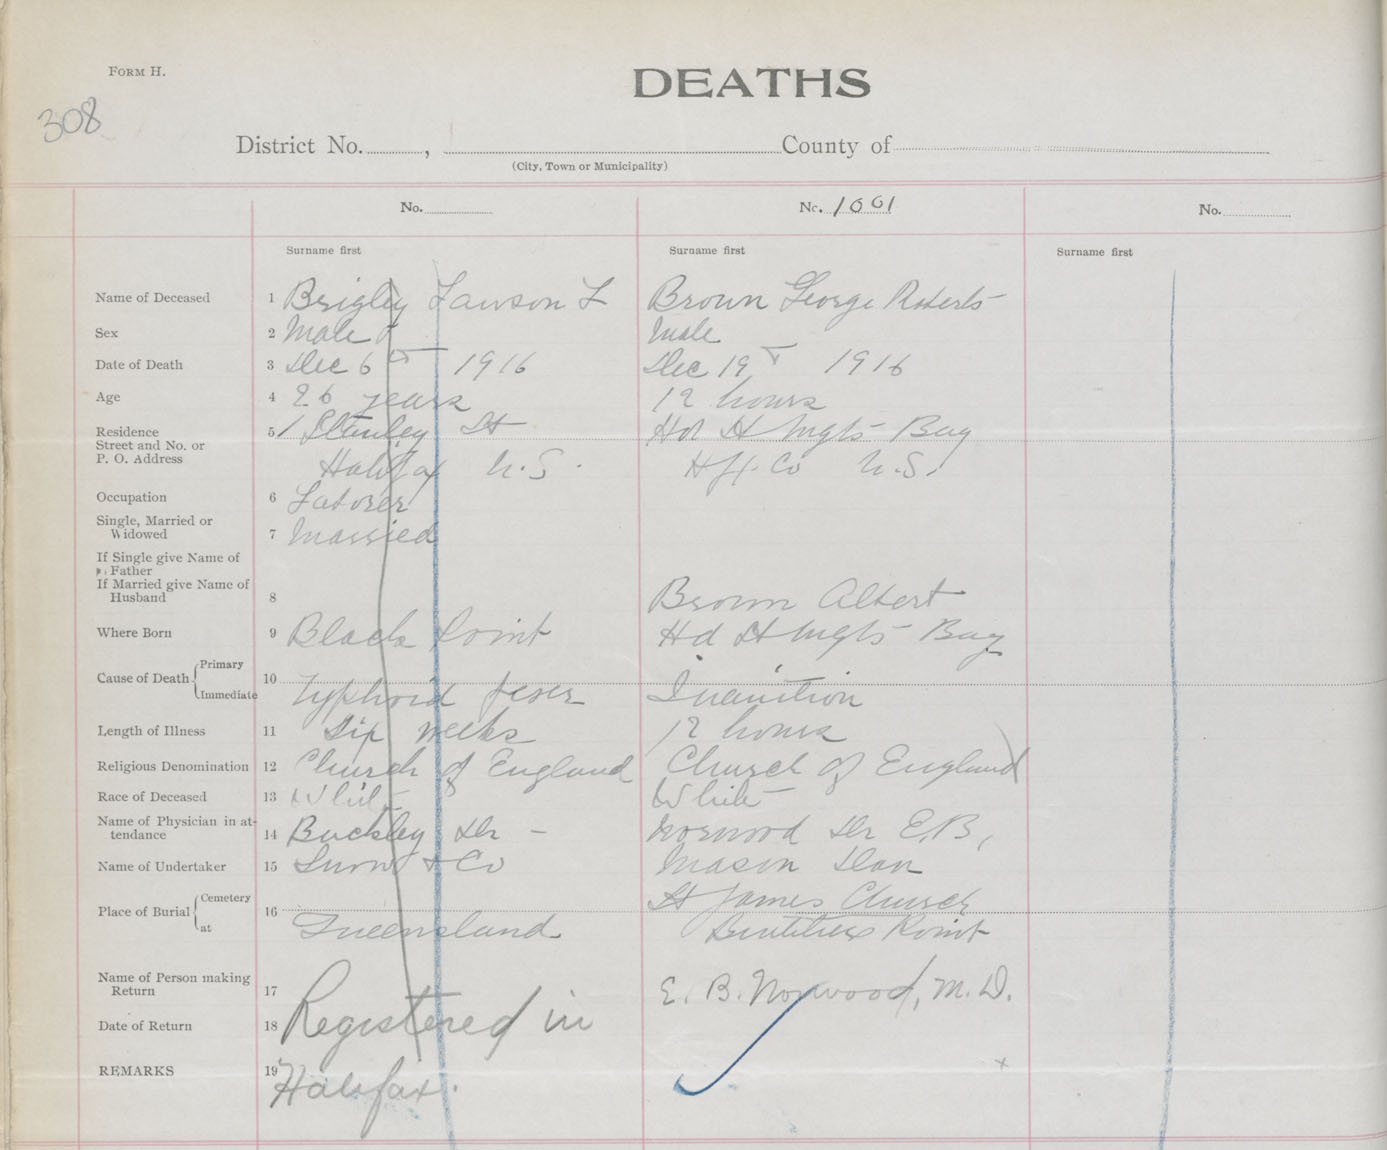 FORM H.
DEATHS
308
District No. , County of
(City, Town or Municipality)
No. No. 1001 No.
Surname first Surname first Surname first
Name of Deceased 1 Brigley Lawson L Brown George Roberts
Sex 2 Male Male
Date of Death 3 Dec 6th 1916 Dec 19th 1916
Age 4 26 years 12 hours
Residence 5 1 Stanley St Hd St Mgts Bay
Street and No. or
P. O. Address Halifax N.S. Hfx. Co N.S.
Occupation 6 Laborer
Single, Married or
Widowed 7 Married
If Single give Name of
Father
If Married give Name of
Husband 8 Brown Albert
Where Born 9 Black Point Hd St Mgts Bay
Cause of Death Primary
Immediate 10 Typhoid fever Inanition
Length of Illness 11 Six weeks 12 hours
Religious Denomination 12 Church of England Church of England
Race of Deceased 13 White White
Name of Physician in at-
tendance 14 Buckley Dr - Norwood Dr E.B,
Name of Undertaker 15 Snow & Co Mason Dan
Place of Burial Cemetery St James Church
at 16 Queensland Point
Name of Person making
Return 17 E. B. Norwood, M.D.
Date of Return 18 Registered in
REMARKS 19 Halifax.